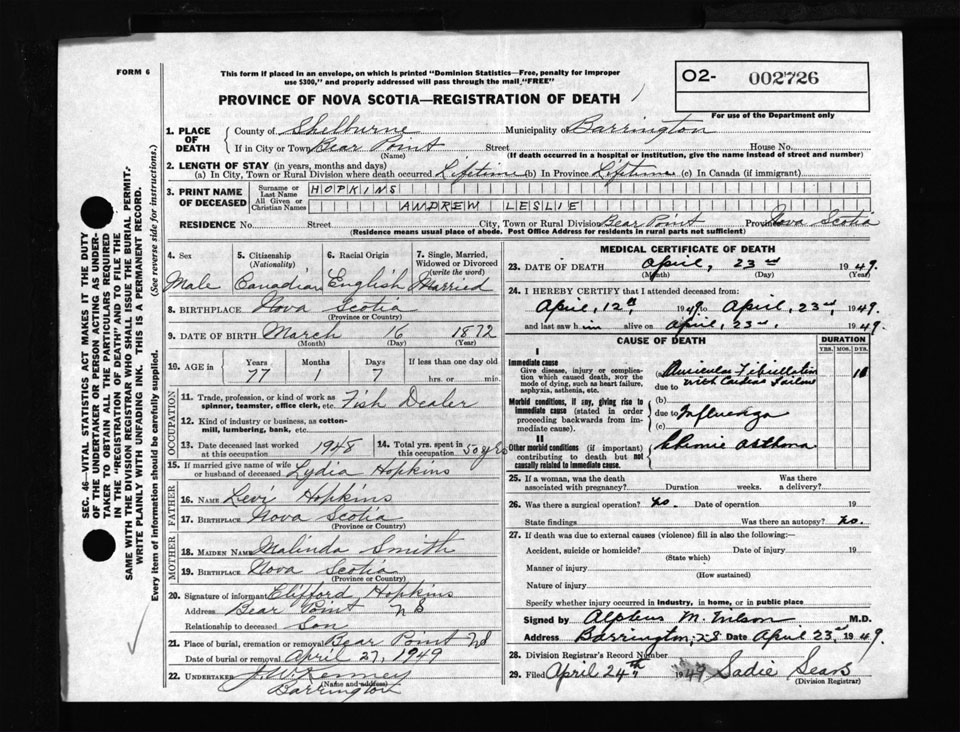 FORM 6
This form if placed in an envelope, on which is printed "Dominion Statistics—Free, penalty for improper
use $300," and properly addressed will pass through the mail "FREE"
O2- 002726
For use of the Department only
PROVINCE OF NOVA SCOTIA—REGISTRATION OF DEATH
1. PLACE OF DEATH County of Shelburne Municipality of Barrington
If in City or Town Bear Point Street House No.
(Name) (If death occurred in a hospital or institution, give the name instead of street and number)
2. LENGTH OF STAY (in years, months and days)
(a) In City, Town or Rural Division where death occurred Lifetime (b) In Province Lifetime (c) In Canada (if immigrant)
3. PRINT NAME OF DECEASED Surname or Last Name HOPKINS
All Given or Christian Names ANDREW LESLIE
RESIDENCE No. Street City, Town or Rural Division Bear Point Province Nova Scotia
(Residence means usual place of abode. Post Office Address for residents in rural parts not sufficient)
4. Sex 5. Citizenship (Nationality) 6. Racial Origin 7. Single, Married, Widowed or Divorced (write the word)
Male Canadian English Married
8. BIRTHPLACE Nova Scotia
(Province or Country)
9. DATE OF BIRTH March 16 1872
(Month) (Day) (Year)
10. AGE in Years Months Days If less than one day old
77 1 7 hrs. or min.
OCCUPATION
11. Trade, profession, or kind of work as spinner, teamster, office clerk, etc. Fish Dealer
12. Kind of industry or business, as cotton-mill, lumbering, bank, etc.
13. Date deceased last worked at this occupation 1948 14. Total yrs. spent in this occupation 50 yrs
15. If married give name of wife or husband of deceased Lydia Hopkins
FATHER
16. NAME Levi Hopkins
17. BIRTHPLACE Nova Scotia
(Province or Country)
MOTHER
18. MAIDEN NAME Malinda Smith
19. BIRTHPLACE Nova Scotia
(Province or Country)
20. Signature of informant Clifford Hopkins
Address Bear Point N S
Relationship to deceased Son
21. Place of burial, cremation or removal Bear Point NS
Date of burial or removal April 27, 1949
22. UNDERTAKER J. W. Kenney
(Name and address)
Barrington
MEDICAL CERTIFICATE OF DEATH
23. DATE OF DEATH April, 23rd 1949.
(Month) (Day) (Year)
24. I HEREBY CERTIFY that I attended deceased from:
April, 12th, 1949. to April, 23rd, 1949.
and last saw him alive on April, 23rd. 1949.
CAUSE OF DEATH DURATION
YRS. MOS. DYS.
I
Immediate cause
Give disease, injury or complication which caused death, not the mode of dying, such as heart failure, asphyxia, asthenia, etc.
(a) Auricular Fibrillation 10
due to with Cardiac Failure
Morbid conditions, if any, giving rise to immediate cause (stated in order proceeding backwards from immediate cause).
(b)
due to Influenza
(c)
II
Other morbid conditions (if important) contributing to death but not causally related to immediate cause.
Chronic Asthma
25. If a woman, was the death associated with pregnancy? Duration weeks. Was there a delivery?
26. Was there a surgical operation? No. Date of operation 19
State findings Was there an autopsy? No.
27. If death was due to external causes (violence) fill in also the following:—
Accident, suicide or homicide? Date of injury 19
(State which)
Manner of injury
(How sustained)
Nature of injury
Specify whether injury occurred in industry, in home, or in public place
Signed by Alpheus M. Wilson M.D.
Address Barrington, N.S Date April 23rd 1949.
28. Division Registrar's Record Number
29. Filed April 24th 1949 Sadie Sears
(Division Registrar)
SEC. 46—VITAL STATISTICS ACT MAKES IT THE DUTY
OF THE UNDERTAKER OR PERSON ACTING AS UNDER-
TAKER TO OBTAIN ALL THE PARTICULARS REQUIRED
IN THE "REGISTRATION OF DEATH" AND TO FILE THE
SAME WITH THE DIVISION REGISTRAR WHO SHALL ISSUE THE BURIAL PERMIT-
WRITE PLAINLY WITH UNFADING INK. THIS IS A PERMANENT RECORD.
Every item of information should be carefully supplied. (See reverse side for instructions.)